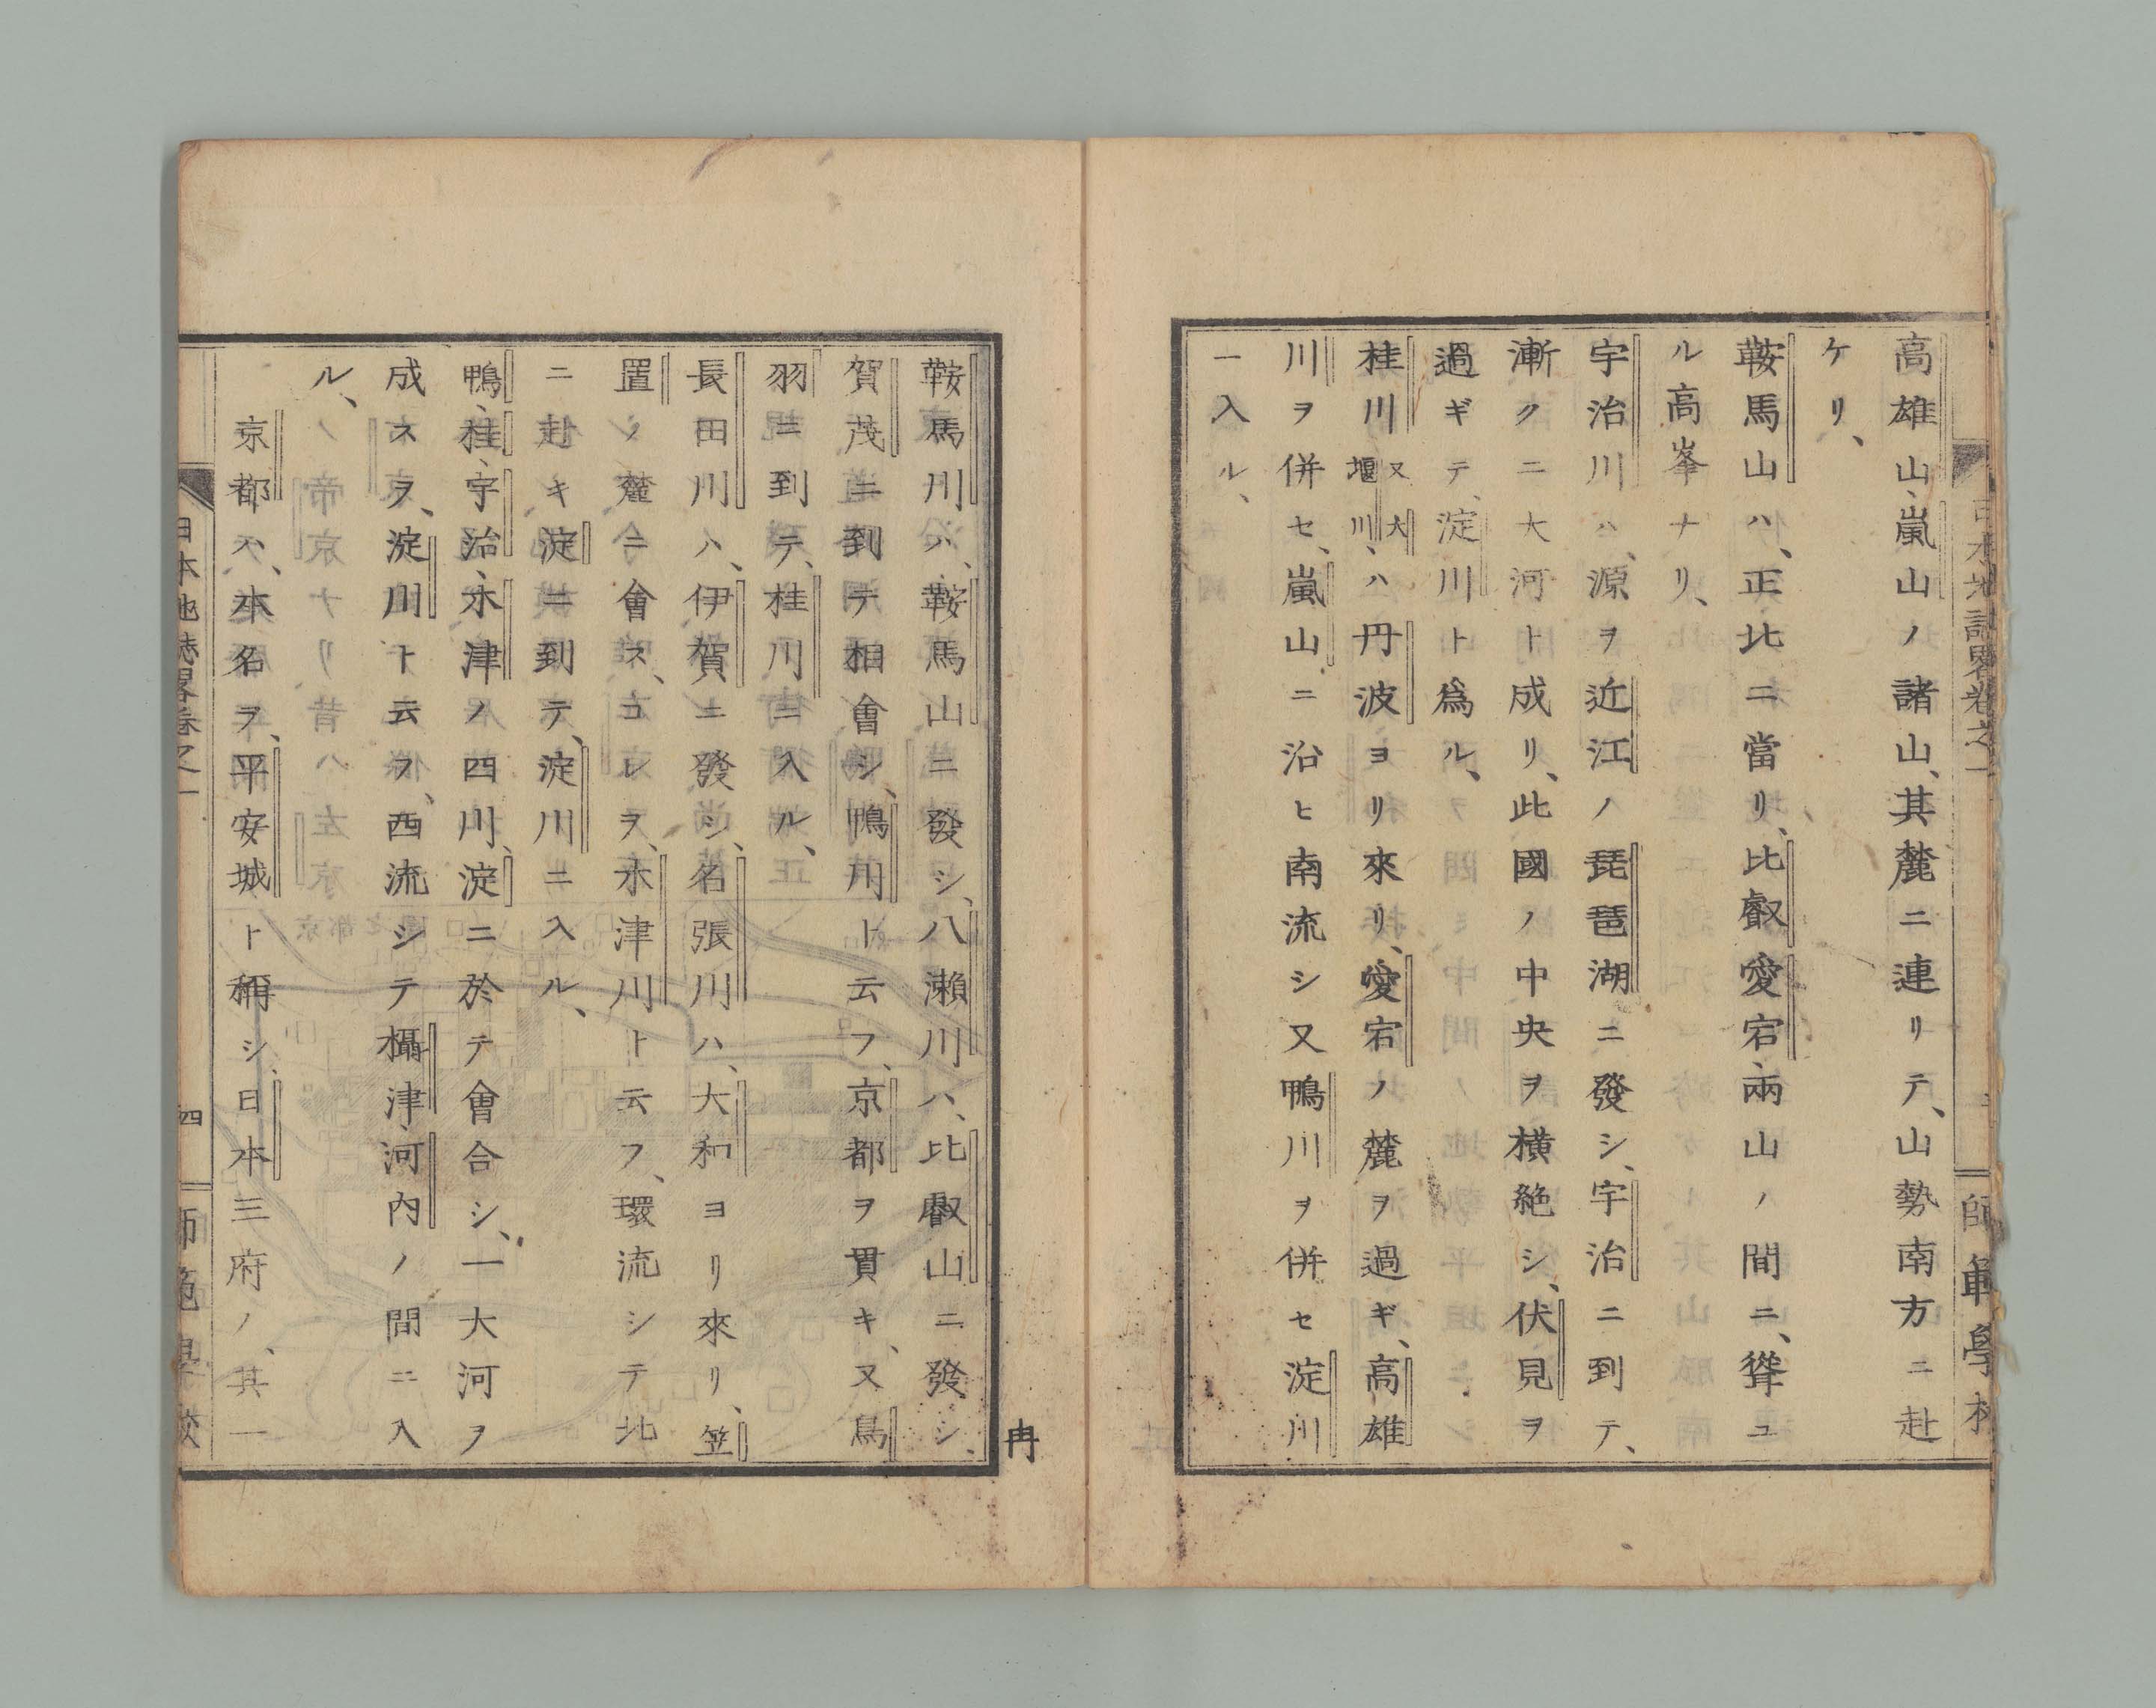 高雄山、嵐山ノ諸山、其麓ニ連リテ、山勢南方ニ赴
ケリ、
鞍馬山ハ、正北ニ當リ、比叡愛宕、兩山ノ間ニ、聳ユ
ル高峯ナリ、
宇治川ハ、源ヲ近江ノ琵琶湖ニ發シ、宇治ニ到テ、
漸クニ大河ト成リ、此國ノ中央ヲ横絶シ、伏見ヲ
過ギテ、淀川ト爲ル、
桂川又大堰川、ハ丹波ヨリ來リ、愛宕ノ麓ヲ過ギ、高雄
川ヲ併セ、嵐山ニ沿ヒ南流シ又鴨川ヲ併セ淀川
ニ入ル、
日本地誌畧卷之一
師範學校
鞍馬川ハ、鞍馬山ニ發シ、八瀬川ハ、比叡山ニ發シ、
賀茂ニ到テ相會シ、鴨川ト云フ、京都ヲ貫キ、又鳥
羽ニ到テ、桂川ニ入ル、
長田川ハ、伊賀ニ發シ、名張川ハ、大和ヨリ來リ、笠
置ノ麓ニ會ス、コレヲ、木津川ト云フ、環流シテ北
ニ赴キ淀ニ到テ、淀川ニ入ル、
鴨、桂、宇治、木津ノ四川、淀ニ於テ會合シ、一大河ヲ
成スヲ、淀川ト云フ、西流シテ攝津、河内ノ間ニ入
ル、
京都ハ、本名ヲ、平安城ト稱シ、日本三府ノ、其一
日本地誌畧卷之一
四
師範學校